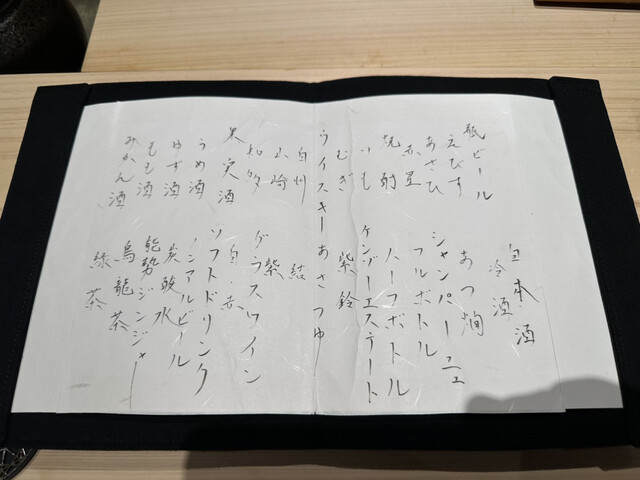 瓶ビール
えびす
あさひ
赤星
焼酎
いも
むぎ
ウイスキー
白州
山崎
知多
果実酒
うめ酒
ゆず酒
もも酒
みかん酒
日本酒
冷酒
あつ燗
シャンパーニュ
フルボトル
ハーフボトル
ケンゾーエステート
紫鈴
あさつゆ
結
紫
グラスワイン
白・赤
ソフトドリンク
ノンアルビール
炭酸水
能勢ジンジャー
烏龍茶
緑茶